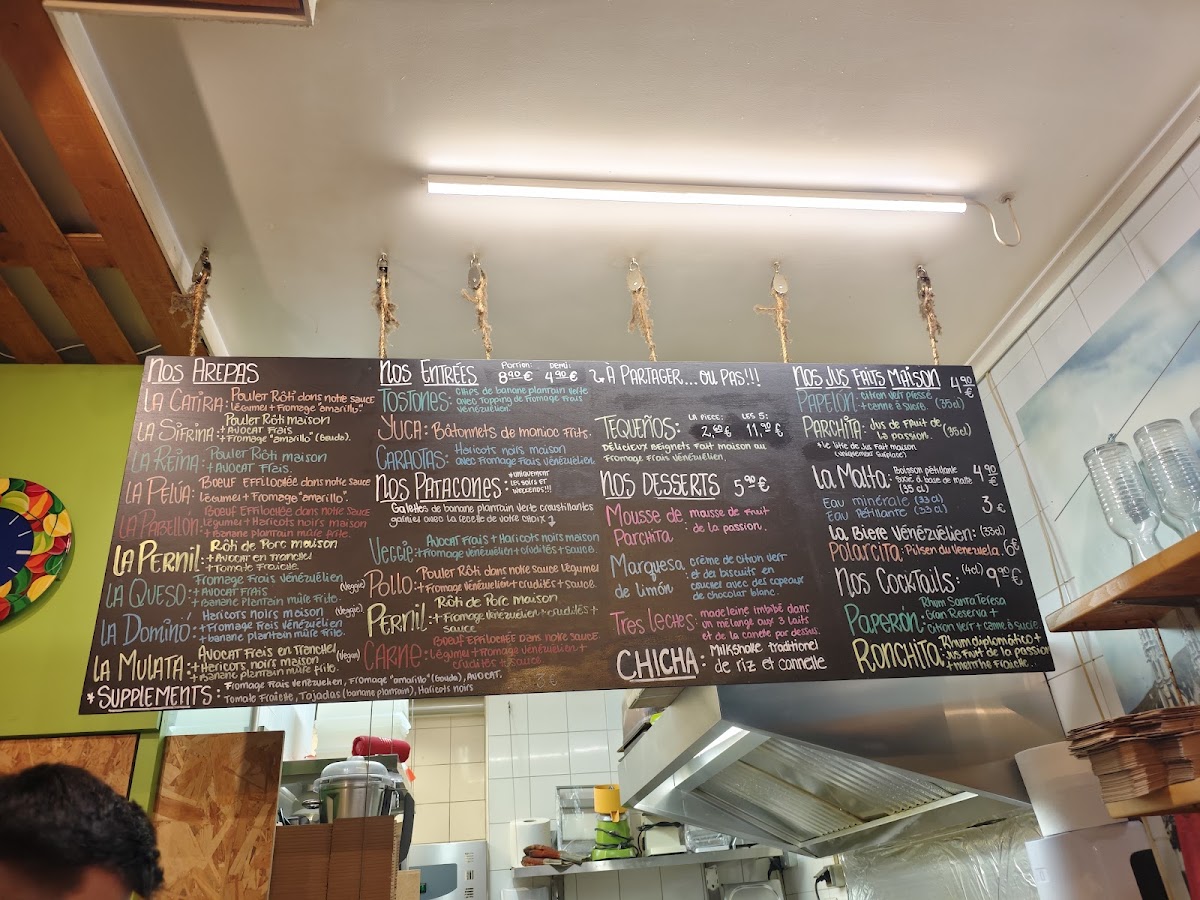 NOS AREPAS
LA CATIRA: Poulet Rôti dans notre sauce
légumes + Fromage "amarillo".
LA SIFRINA: Poulet Rôti maison
+ AVOCAT FRAIS
+ Fromage "amarillo" (Gouda).
LA REINA: Poulet Rôti maison
+ AVOCAT FRAIS.
LA PELÚA: BOEUF EFFILOCHÉE DANS NOTRE SAUCE
légumes + Fromage "amarillo".
LA PABELLÓN: BOEUF EFFILOCHÉE DANS NOTRE SAUCE
légumes + Haricots noirs maison
+ Banane plantain mûre frite.
LA PERNIL: Rôti de Porc maison
+ AVOCAT en Tranches
+ Tomate Fraîche.
LA QUESO: Fromage Frais Vénézuélien (Veggie)
+ AVOCAT FRAIS
+ Banane plantain mûre Frite.
LA DOMINÓ: Haricots noirs maison (Veggie)
+ Fromage Frais Vénézuélien
+ banane plantain mûre Frite.
LA MULATA: AVOCAT Frais en Tranches (Vegan)
+ Haricots noirs maison
+ Banane plantain mûre frite.
* SUPPLEMENTS: Fromage Frais Venezuelien, Fromage "amarillo" (Gouda), AVOCAT.
Tomate Fraîche, Tajadas (banane plantain), Haricots noirs
NOS ENTRÉES PORTION: 8,90 € DEMI: 4,90 €
TOSTONES: Chips de banane plantain verte
avec topping de Fromage Frais
Vénézuélien.
YUCA: Bâtonnets de manioc Frits.
CARAOTAS: Haricots noirs maison
avec Fromage Frais Vénézuélien.
NOS PATACONES: *UNIQUEMENT
LES SOIRS ET
WEEKENDS!!!
Galettes de banane plantain verte croustillantes
garnies avec la recette de votre choix
Veggie: AVOCAT FRAIS + Haricots noirs maison
+ Fromage vénézuélien + crudités + sauce.
POLLO: Poulet Rôti dans notre sauce légumes
+ Fromage Vénézuélien + crudités + sauce.
PERNIL: Rôti de Porc maison
+ Fromage vénézuélien + crudités +
sauce
CARNE: BOEUF EFFILOCHÉE DANS NOTRE SAUCE
légumes + Fromage vénézuélien +
crudités + sauce
À PARTAGER... OU PAS!!!
TEQUEÑOS: LA PIECE: 2,60 € LES 5: 11,90 €
Délicieux beignets fait maison au
Fromage Frais Vénézuélien.
NOS DESSERTS 5,90 €
Mousse de Parchita: mousse de Fruit
de la passion.
Marquesa de limón: crème de citron vert
et des biscuits en
couches avec des copeaux
de chocolat blanc.
Tres leches: madeleine imbibé dans
un mélange aux 3 laits
et de la canelle par dessus.
CHICHA: Milkshake traditionel
de riz et cannelle
NOS JUS FAITS MAISON 4,90 €
PAPELÓN: citron vert pressé
+ canne à sucre. (35cl)
PARCHITA: Jus de Fruit de
la passion. (35cl)
LA MALTA: Boisson pétillante
sucré à base de malte
(35 cl) 4,90 €
Eau minérale (33cl)
Eau Pétillante (33cl) 3 €
LA BIERE VÉNÉZUÉLIEN: (33cl)
POLARCITA: Pilsen du Venezuela. 6€
NOS COCKTAILS: (4cl) 9,90 €
PAPERÓN: Rhum Santa Teresa
Gran Reserva +
citron vert + canne à sucre.
RONCHITA: Rhum diplomático +
Jus Fruit de la passion
+ menthe fraîche.